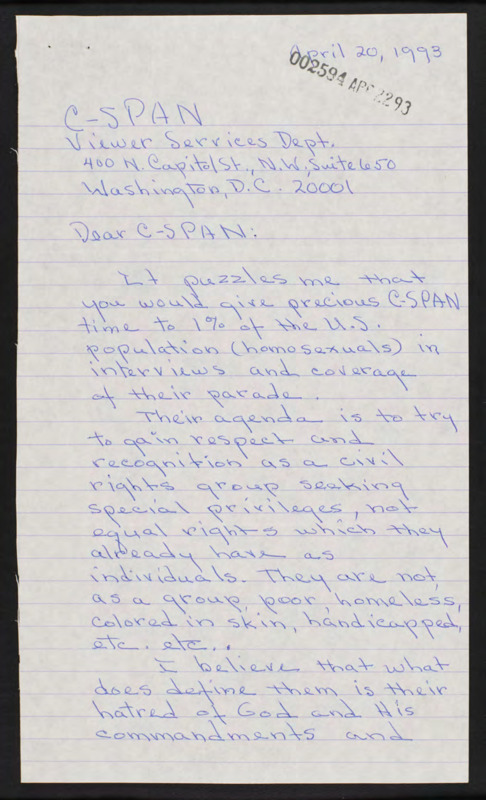 April 20, 1993
002594 APR 22 93
C-SPAN
Viewer Services Dept.
400 N. Capitol St., N.W., Suite 650
Washington, D.C. 20001
Dear C-SPAN:
It puzzles me that
you would give precious C-SPAN
time to 1% of the U.S.
population (homosexuals) in
interviews and coverage
of their parade.
Their agenda is to try
to gain respect and
recognition as a civil
rights group seeking
special privileges, not
equal rights which they
already have as
individuals. They are not,
as a group, poor, homeless,
colored in skin, handicapped,
etc. etc..
I believe that what
does define them is their
hatred of God and His
commandments and